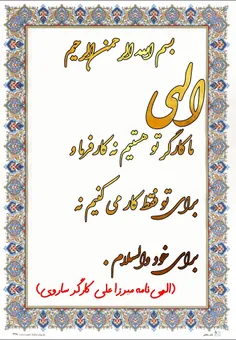 بسم الله الرحمن الرحیم
الهی
ما کارگر تو هستیم نه کارفرما و
برای تو فقط کار می کنیم نه
برای خود والسلام .
(الهی نامه میرزا علی کارگر ساروی)